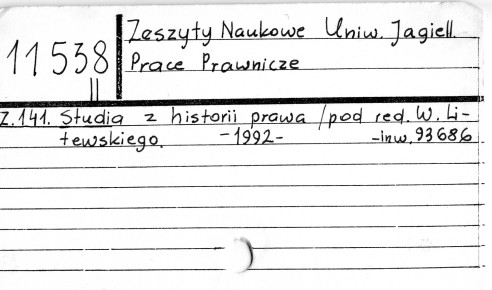 Zeszyty Naukowe Uniw. Jagiell.
11 538
Prace Prawnicze
II
Z.141. Studia z historii prawa /pod red. W. Li-
tewskiego. -1992- -inw. 93686